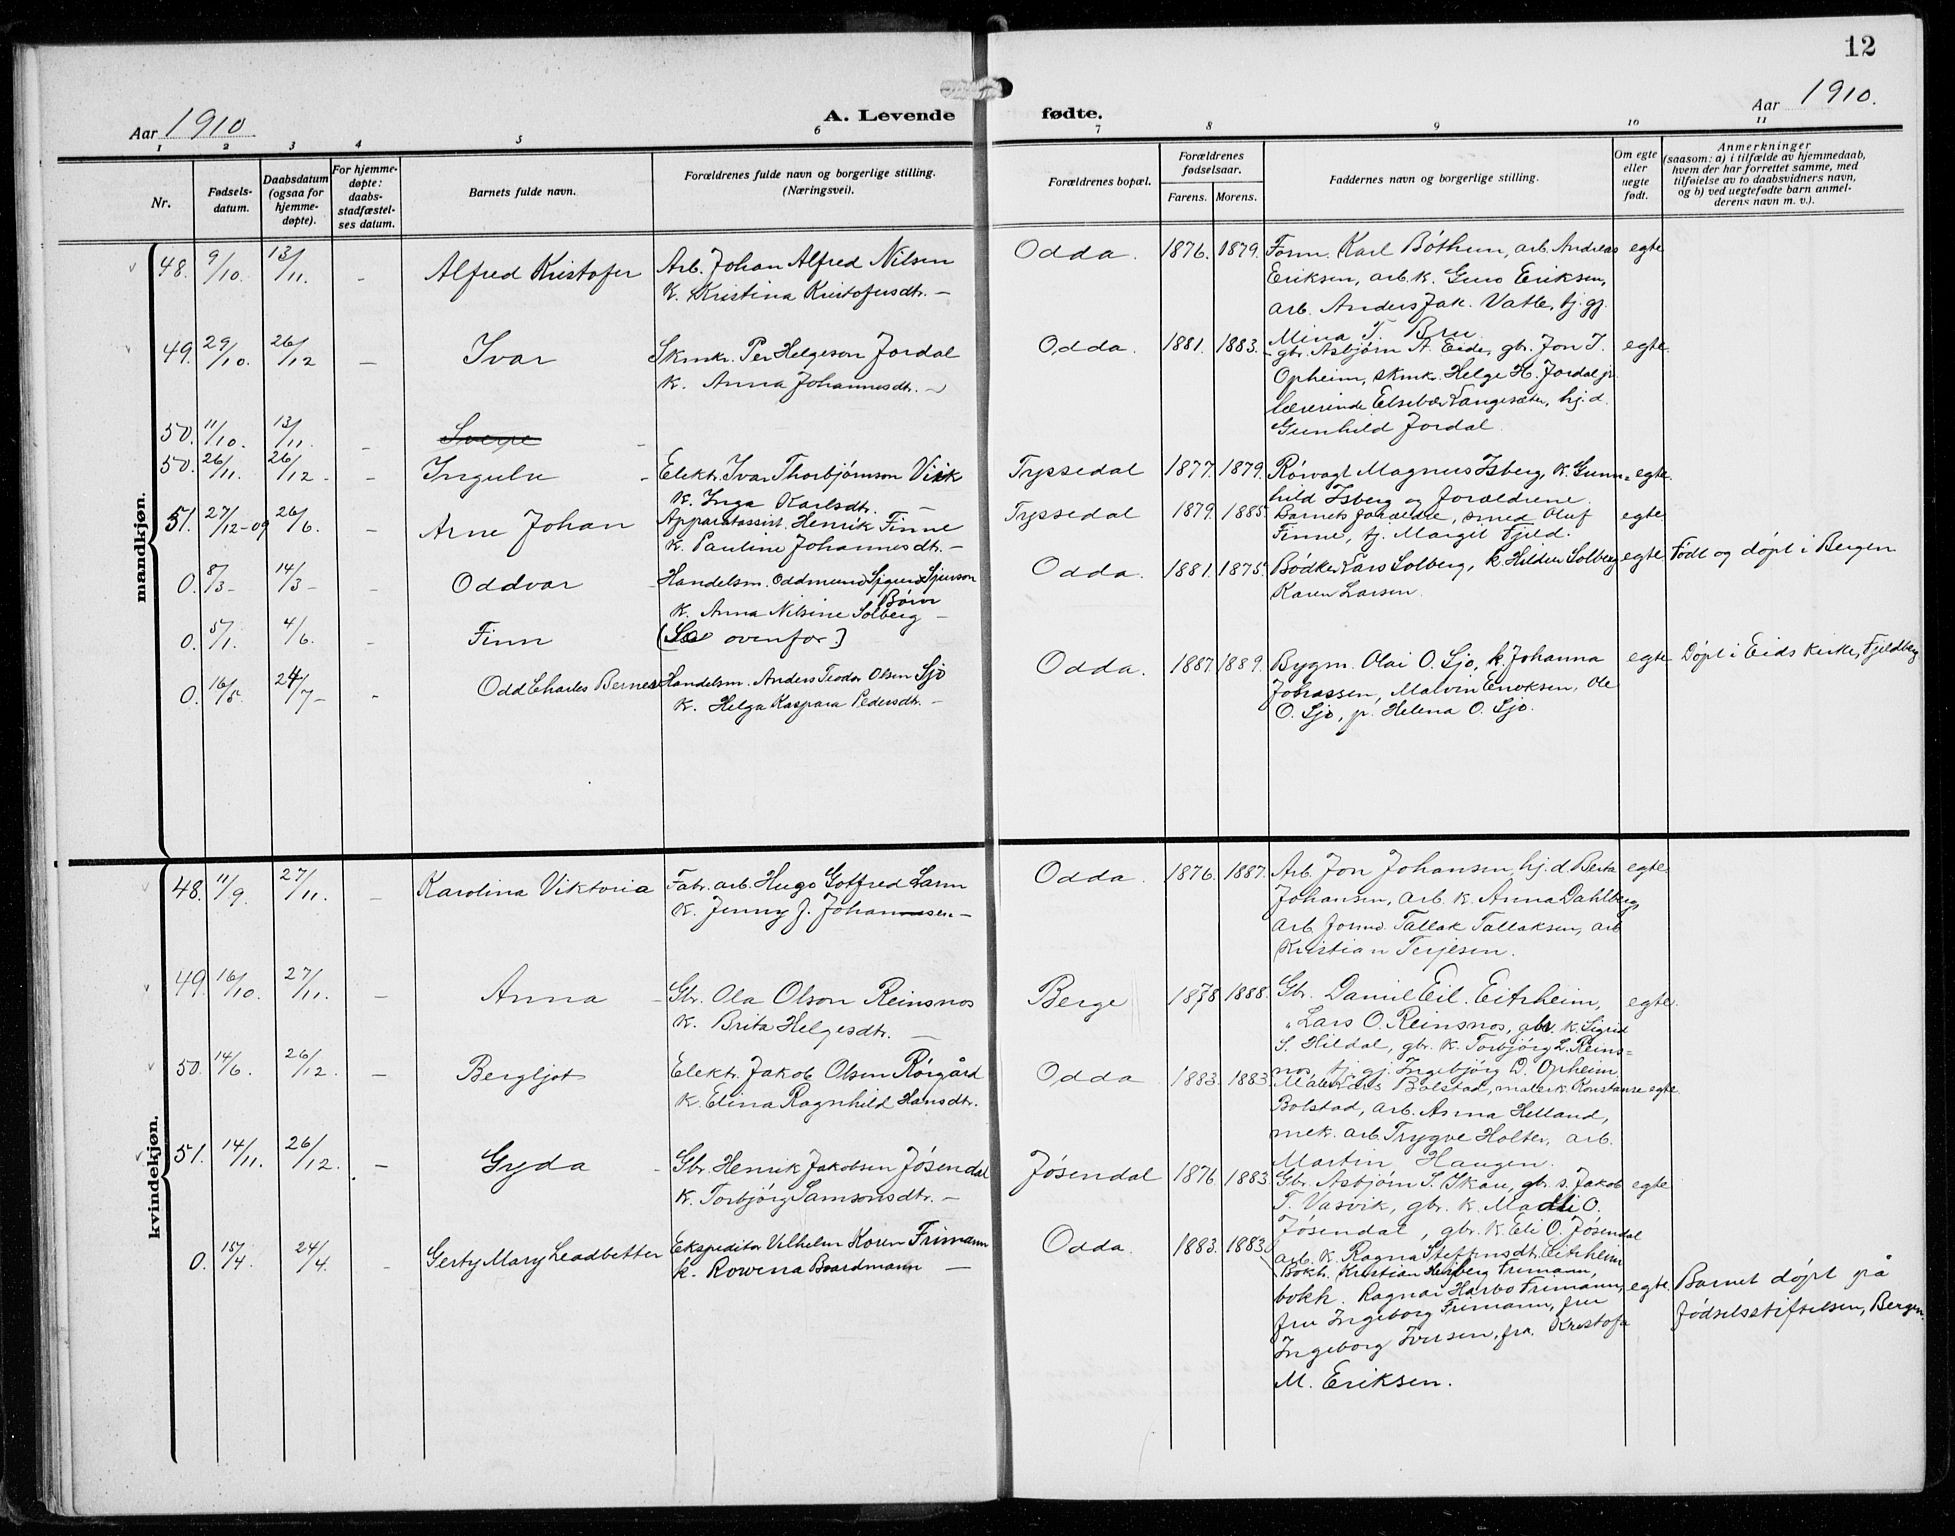 12
Aar 1910
A. Levende fødte.
Aar 1910.
1 2 3 4 5 6 7 8 9 10 11
Nr.
Fødsels-
datum.
Daabsdatum
(ogsaa for
hjemme-
døpte).
For hjemme-
døpte:
daabs-
stadfæstel-
ses datum.
Barnets fulde navn.
Forældrenes fulde navn og borgerlige stilling.
(Næringsvei).
Forældrenes bopæl.
Forældrenes
fødselsaar.
Farens. Morens.
Faddernes navn og borgerlige stilling.
Om egte
eller
uegte
født.
Anmerkninger
(saasom: a) i tilfælde av hjemmedaab,
hvem der har forrettet samme, med
tilføielse av to daabsvidners navn,
og b) ved uegtefødte barn anmel-
derens navn m. v.).
mandkjøn.
48. 9/10. 13/11. - Alfred Kristofer Arb. Johan Alfred Nilsen Odda. 1876. 1879. Form. Karl Böthun, arb. Andreas egte
K. Kristina Kristofersdtr. - Eriksen, arb. k. Guro Eriksen,
arb. Anders Jak. Vatle, tj. gj.
Mina T. Bru
49. 29/10. 26/12 - Ivar Skmkr. Per Helgeson Jordal Odda. 1881. 1883. gbr. Asbjørn A. Eide, gbr. Jon J. egte.
K. Anna Johannesdtr. - Opheim, skmk. Helge H. Jordal jr.
lærerinde Elsebær Langesæter, hj.d.
Gunhild Jordal.
50. 11/10. 13/11. -
50. 26/11. 26/12. - Ingulv - Elektr. Ivar Thorbjørnson Vik Tyssedal 1877. 1879. Rörvagt Magnus Isberg, k. Gunn= egte.
K. Inga Karlsdtr. - hild Isberg og forældrene.
51. 27/12-09 26/6. - Arne Johan Apparatassist. Henrik Finne Tyssedal 1879. 1885. Barnets forældre, smed Oluf egte
K. Pauline Johannesdtr. - Finne, tj. Margit Fjeld.
0. 8/3- 14/3- - Oddvar Handelsm. Oddmund Sigurd Sjurson Odda. 1881. 1875. Bødker Lars Solberg, k. Hilda Solberg egte. Født og döpt i Bergen
Børn
K. Anna Nilsine Solberg - Karen Larsen.
0. 5/1. 4/6. - Finn (Se ovenfor.)
0. 16/5. 24/7- - Odd Charles Berner Handelsm. Anders Teodor Olsen Sjo Odda. 1887. 1889. Bygm. Olai O. Sjo, k. Johanna egte Døpt i Eids kirke, Fjeldberg
K. Helga Kaspara Pedersdtr. - Johassen, Malvin Enoksen, Ole
O. Sjo, p. Helena O. Sjo.
kvindekjøn.
48. 11/9. 27/11. - Karolina Viktoria Fabr. arb. Hugo Gotfred Larm Odda. 1876. 1887. Arb. Jon Johansen, hj.d. Berta egte
K. Jenny J. Johannesen - Johansen, arb. k. Anna Dahlberg,
arb. formd. Tallak Tallaksen, arb
Kristian Terjesen.
49. 16/10. 27/11. - Anna - Gbr. Ola Olson Reinsnos Berge 1878 1888. Gbr. Daniel Eil. Eitrheim, egte.
K. Brita Helgesdtr. - " Lars O. Reinsnos, gbr. k. Sigrid
S. Hildal, gbr. k. Torbjörg L. Reins=
nos, tj. gj. Ingebjørg D. Opheim
50. 14/6. 26/12. - Bergljot Elektr. Jakob Olsen Rörgård Odda 1883. 1883. Maler Lars Bolstad, maler k. Konstanse egte.
K. Elina Ragnhild Hansdtr. Bolstad, arb. Anna Helland,
mek. arb. Trygve Holter, arb.
Martin Haugen.
51. 14/11. 26/12. - Gyda - Gbr. Henrik Jakobsen Jösendal Jösendal 1876. 1883. Gbr. Asbjörn S. Skau, gbr. s. Jakob egte
K. Torbjörg Samsonsdtr. - T. Vasvik, gbr. k. Madli O.
Jösendal, gbr. k. Eli O. Jösendal
arb. k. Ragna Steffensdtr. Eitrheim
0. 15/4. 24/4. - Gerty Mary Leadbetter Ekspeditør Vilhelm Koren Frimann Odda. 1883. 1883. Bokh. Kristian Herberg Frimann,
K. Rowena Boardmann - bokh. Ragnar Harbo Frimann, egte. Barnet döpt på
fru Ingeborg Frimann, fru födselsstiftelsen, Bergen.
Ingeborg Iversen, frk. Kristofa
M. Eriksen.